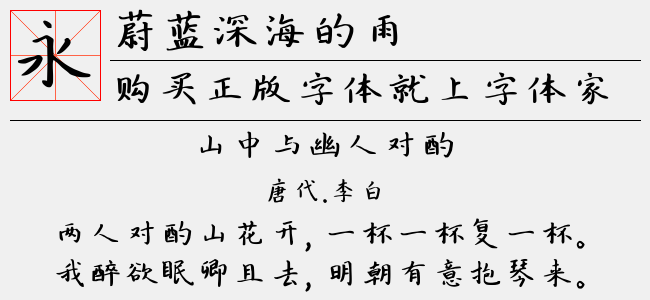 永
蔚蓝深海的雨
购买正版字体就上字体家
山中与幽人对酌
唐代.李白
两人对酌山花开，一杯一杯复一杯。
我醉欲眠卿且去，明朝有意抱琴来。